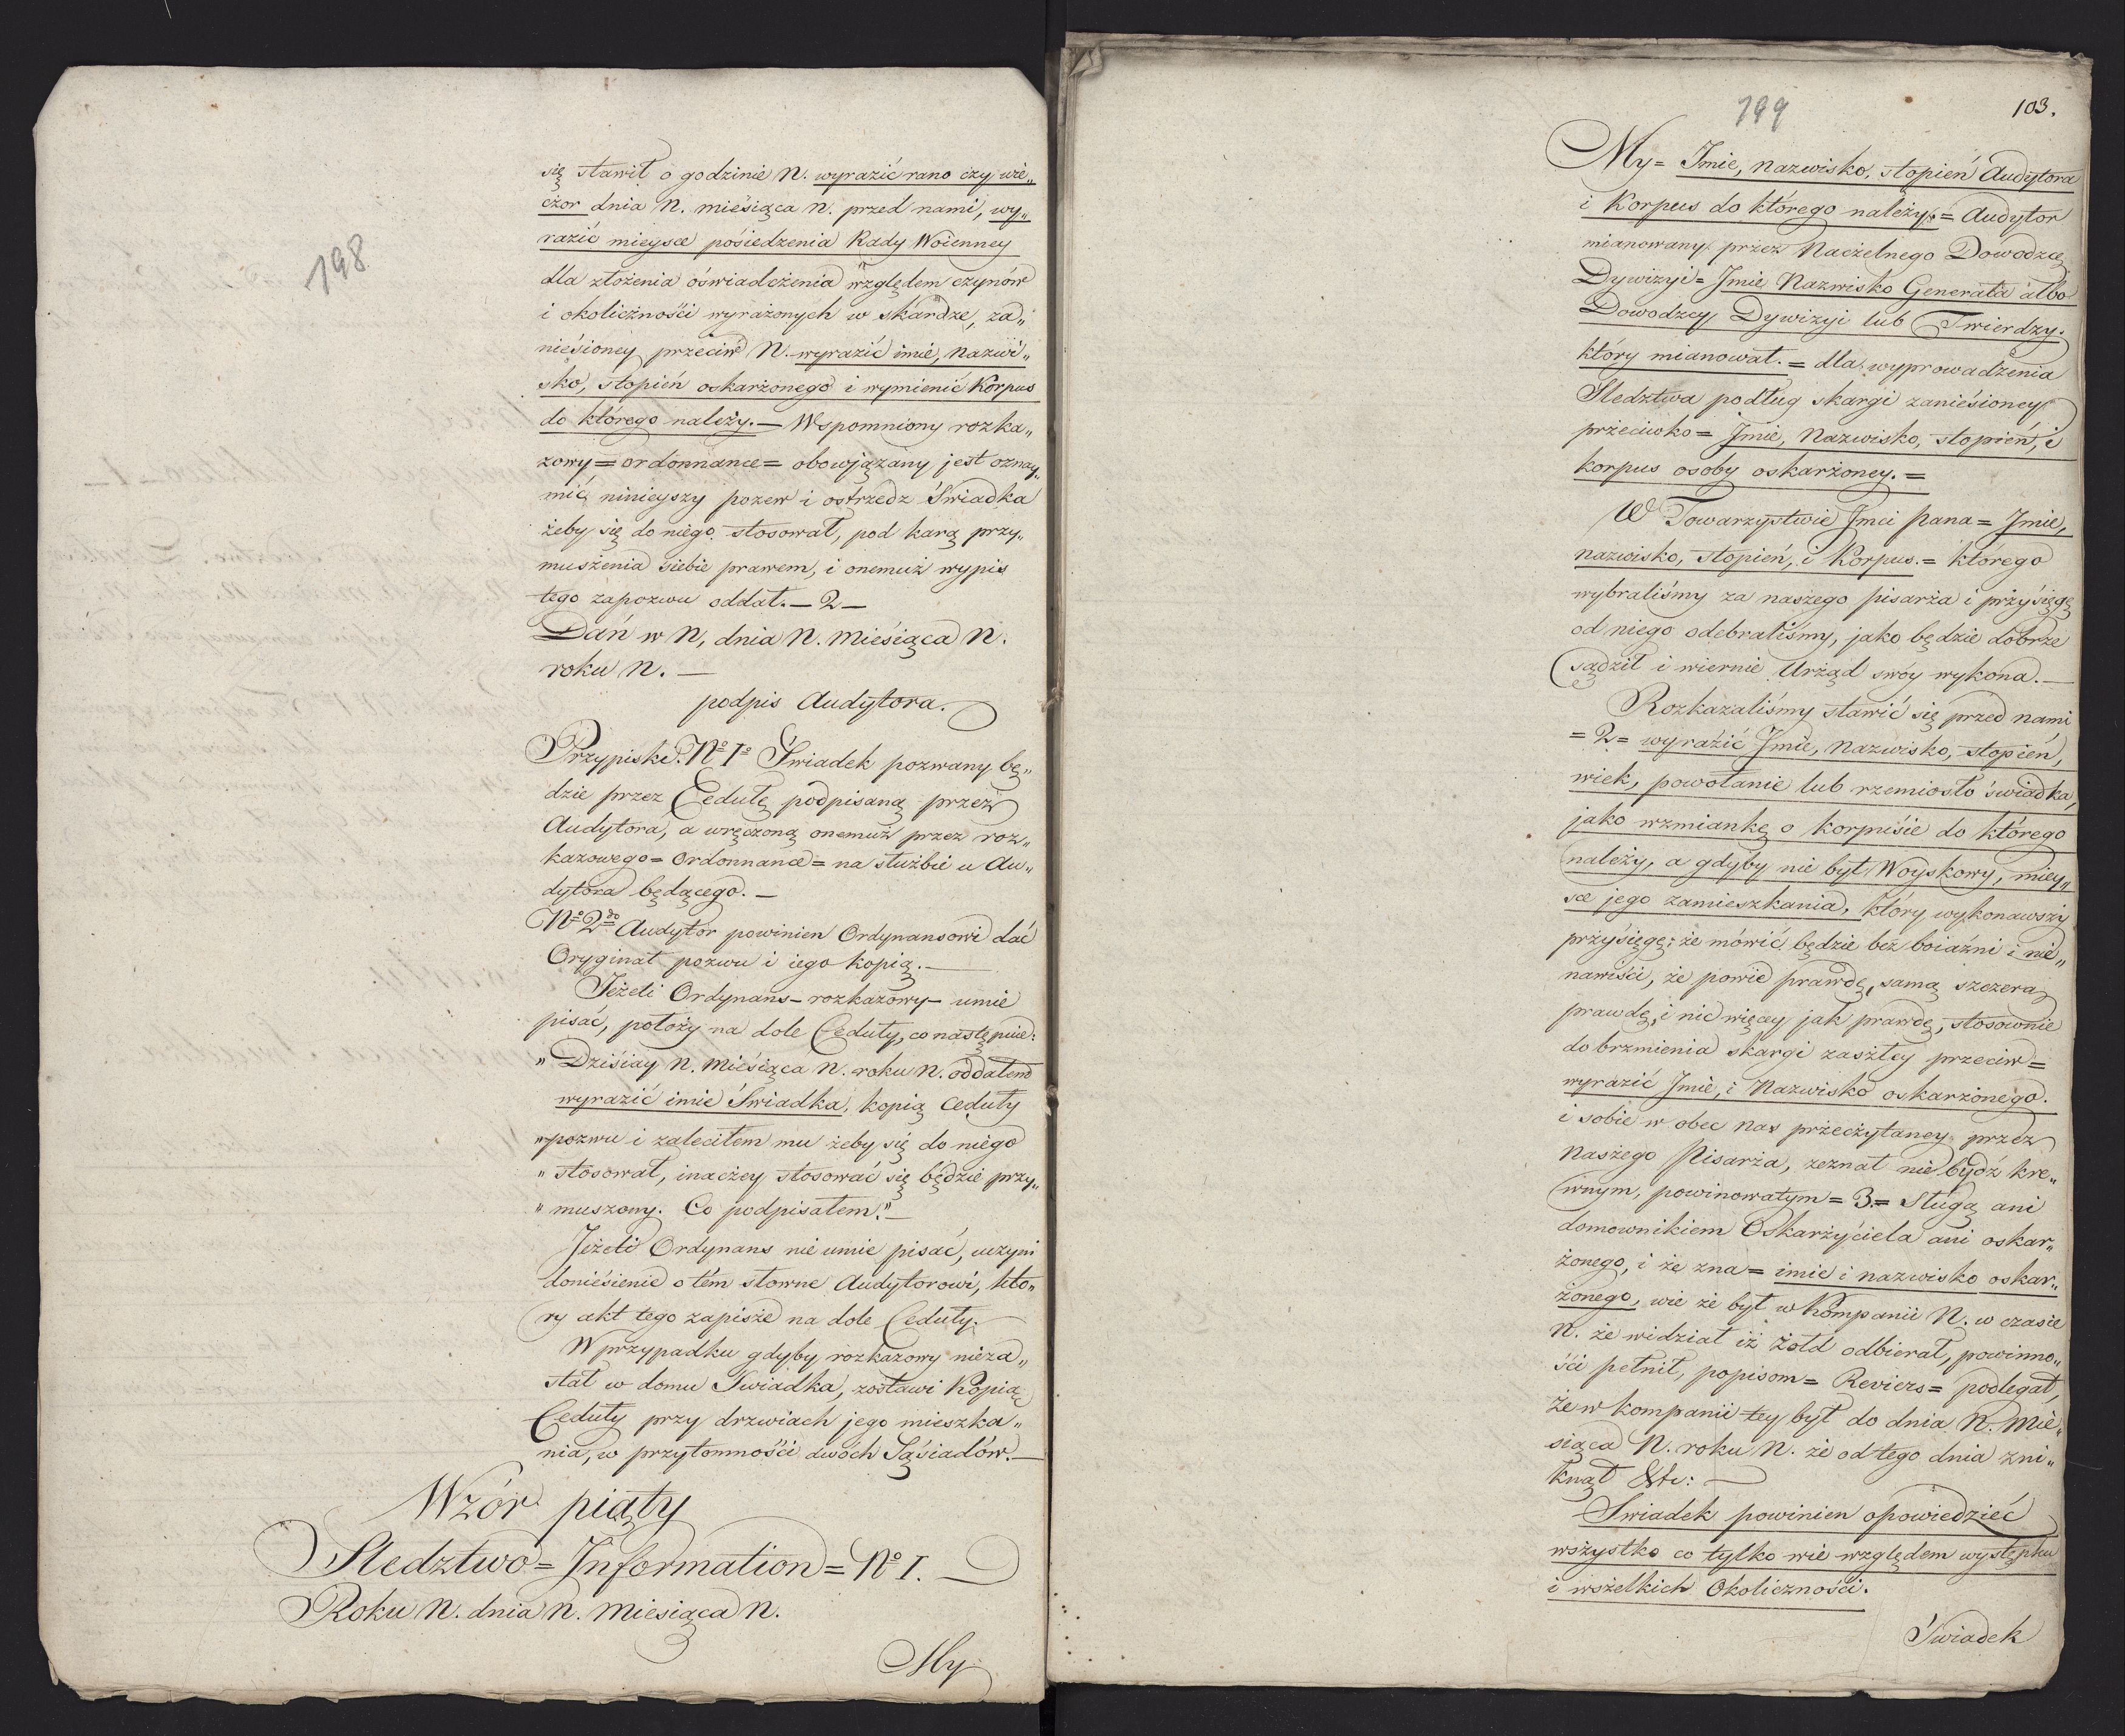 198
się stawił o godzinie N. wyrazić rano czy wie„
czor dnia N. miesiąca N. przed nami, wy„
razić mieysce posiedzenia Rady Woienney
dla złożenia oświadczenia względem czynów
i okoliczności wyrażonych w skardze, za„
niesioney przeciw N. wyrazić imie, nazwi„
sko, stopień oskarżonego i wymienić Korpus
do którego należy. — Wspomniony rozka„
zowy = ordonnance = obowjązany jest oznay„
mić ninieyszy pozew i ostrzedz Świadka
żeby się do niego stosował, pod karą przy„
muszenia siebie prawem, i onemuż wypis
tego zapozwu oddał. — 2 —
Dań w N, dnia N. Miesiąca N.
roku N. —
podpis Audytora.
Przypiski. Nº Iº Świadek pozwany bę„
dzie przez Cedułę podpisaną przez
Audytora, a wręczoną onemuż przez roz„
kazowego = ordonnance = na służbie u Au„
dytora będącego. —
Nº 2do Audytor powinien Ordynansowi dać
Oryginał pozwu i iego kopią. —
Jeżeli Ordynans – rozkazowy – umie
pisać, położy na dole Ceduły, co następuie:
„ Dzisiay N. Miesiąca N. roku N. oddałem
wyrazić imie Świadka, kopią Ceduły
„ pozwu i zaleciłem mu żeby się do niego
„ stosował, inaczey stosować się będzie przy„
„ muszony. Co podpisałem." —
Jeżeli Ordynans nie umie pisać, uczyni
doniesienie o tém słowne Audytorowi, któ„
ry akt tego zapisze na dole Ceduły.
W przypadku gdyby rozkazowy nieza„
stał w domu Świadka, zostawi Kopią
Ceduły przy drzwiach jego mieszka„
nia, w przytomności dwóch Sąsiadów. —
Wzór piąty
Sledztwo = Information = Nº I. —
Roku N. dnia N. Miesiąca N.
My
199
103.
My = Imie, nazwisko, stopień Audytora
i Korpus do którego należy. = Audytor
mianowany przez Naczelnego Dowodzcę
Dywizyi = Jmie Nazwisko Generała albo
Dowodzcy Dywizyi lub Twierdzy.
który mianował. = dla wyprowadzenia
Sledztwa podług skargi zaniesioney
przeciwko = Jmie, Nazwisko, stopień, i
korpus osoby oskarżoney. =
W Towarzystwie Jmci pana = Jmie,
nazwisko, stopień, i Korpus. = którego
wybraliśmy za naszego pisarza i przysięgę
od niego odebraliśmy, jako będzie dobrze
sądził i wiernie Urząd swóy wykona. —
Rozkazaliśmy stawić się przed nami
= 2 = wyrazić Jmie, Nazwisko, stopień,
wiek, powołanie lub rzemiosło świadka,
jako wzmiankę o korpusie do którego
należy, a gdyby nie był Woyskowy, miey„
sce jego zamieszkania, który wykonawszy
przysięgę: że mówić będzie bez boiaźni i nie„
nawiści, że powie prawdę, samą szczerą
prawdę, i nic więcey jak prawdę, stosownie
do brzmienia skargi zaszłey przeciw =
wyrazić Jmie, i Nazwisko oskarżonego.
i sobie w obec nas przeczytaney przez
Naszego Pisarza, zeznał nie bydź kre„
wnym, powinowatym = 3. = Sługą ani
domownikiem Oskarżyciela ani oskar„
żonego, i że zna = imie i nazwisko oskar„
żonego, wie że był w Kompanii N. w czasie
N. że widział iż żołd odbierał, powinno„
ści pełnił, popisom = Reviers = podlegał,
że w kompanii tey był do dnia N. Mie„
siąca N. roku N. że od tego dnia zni„
knął &tc: —
Swiadek powinien opowiedzieć
wszystko co tylko wie względem występku
i wszelkich Okoliczności.
Świadek